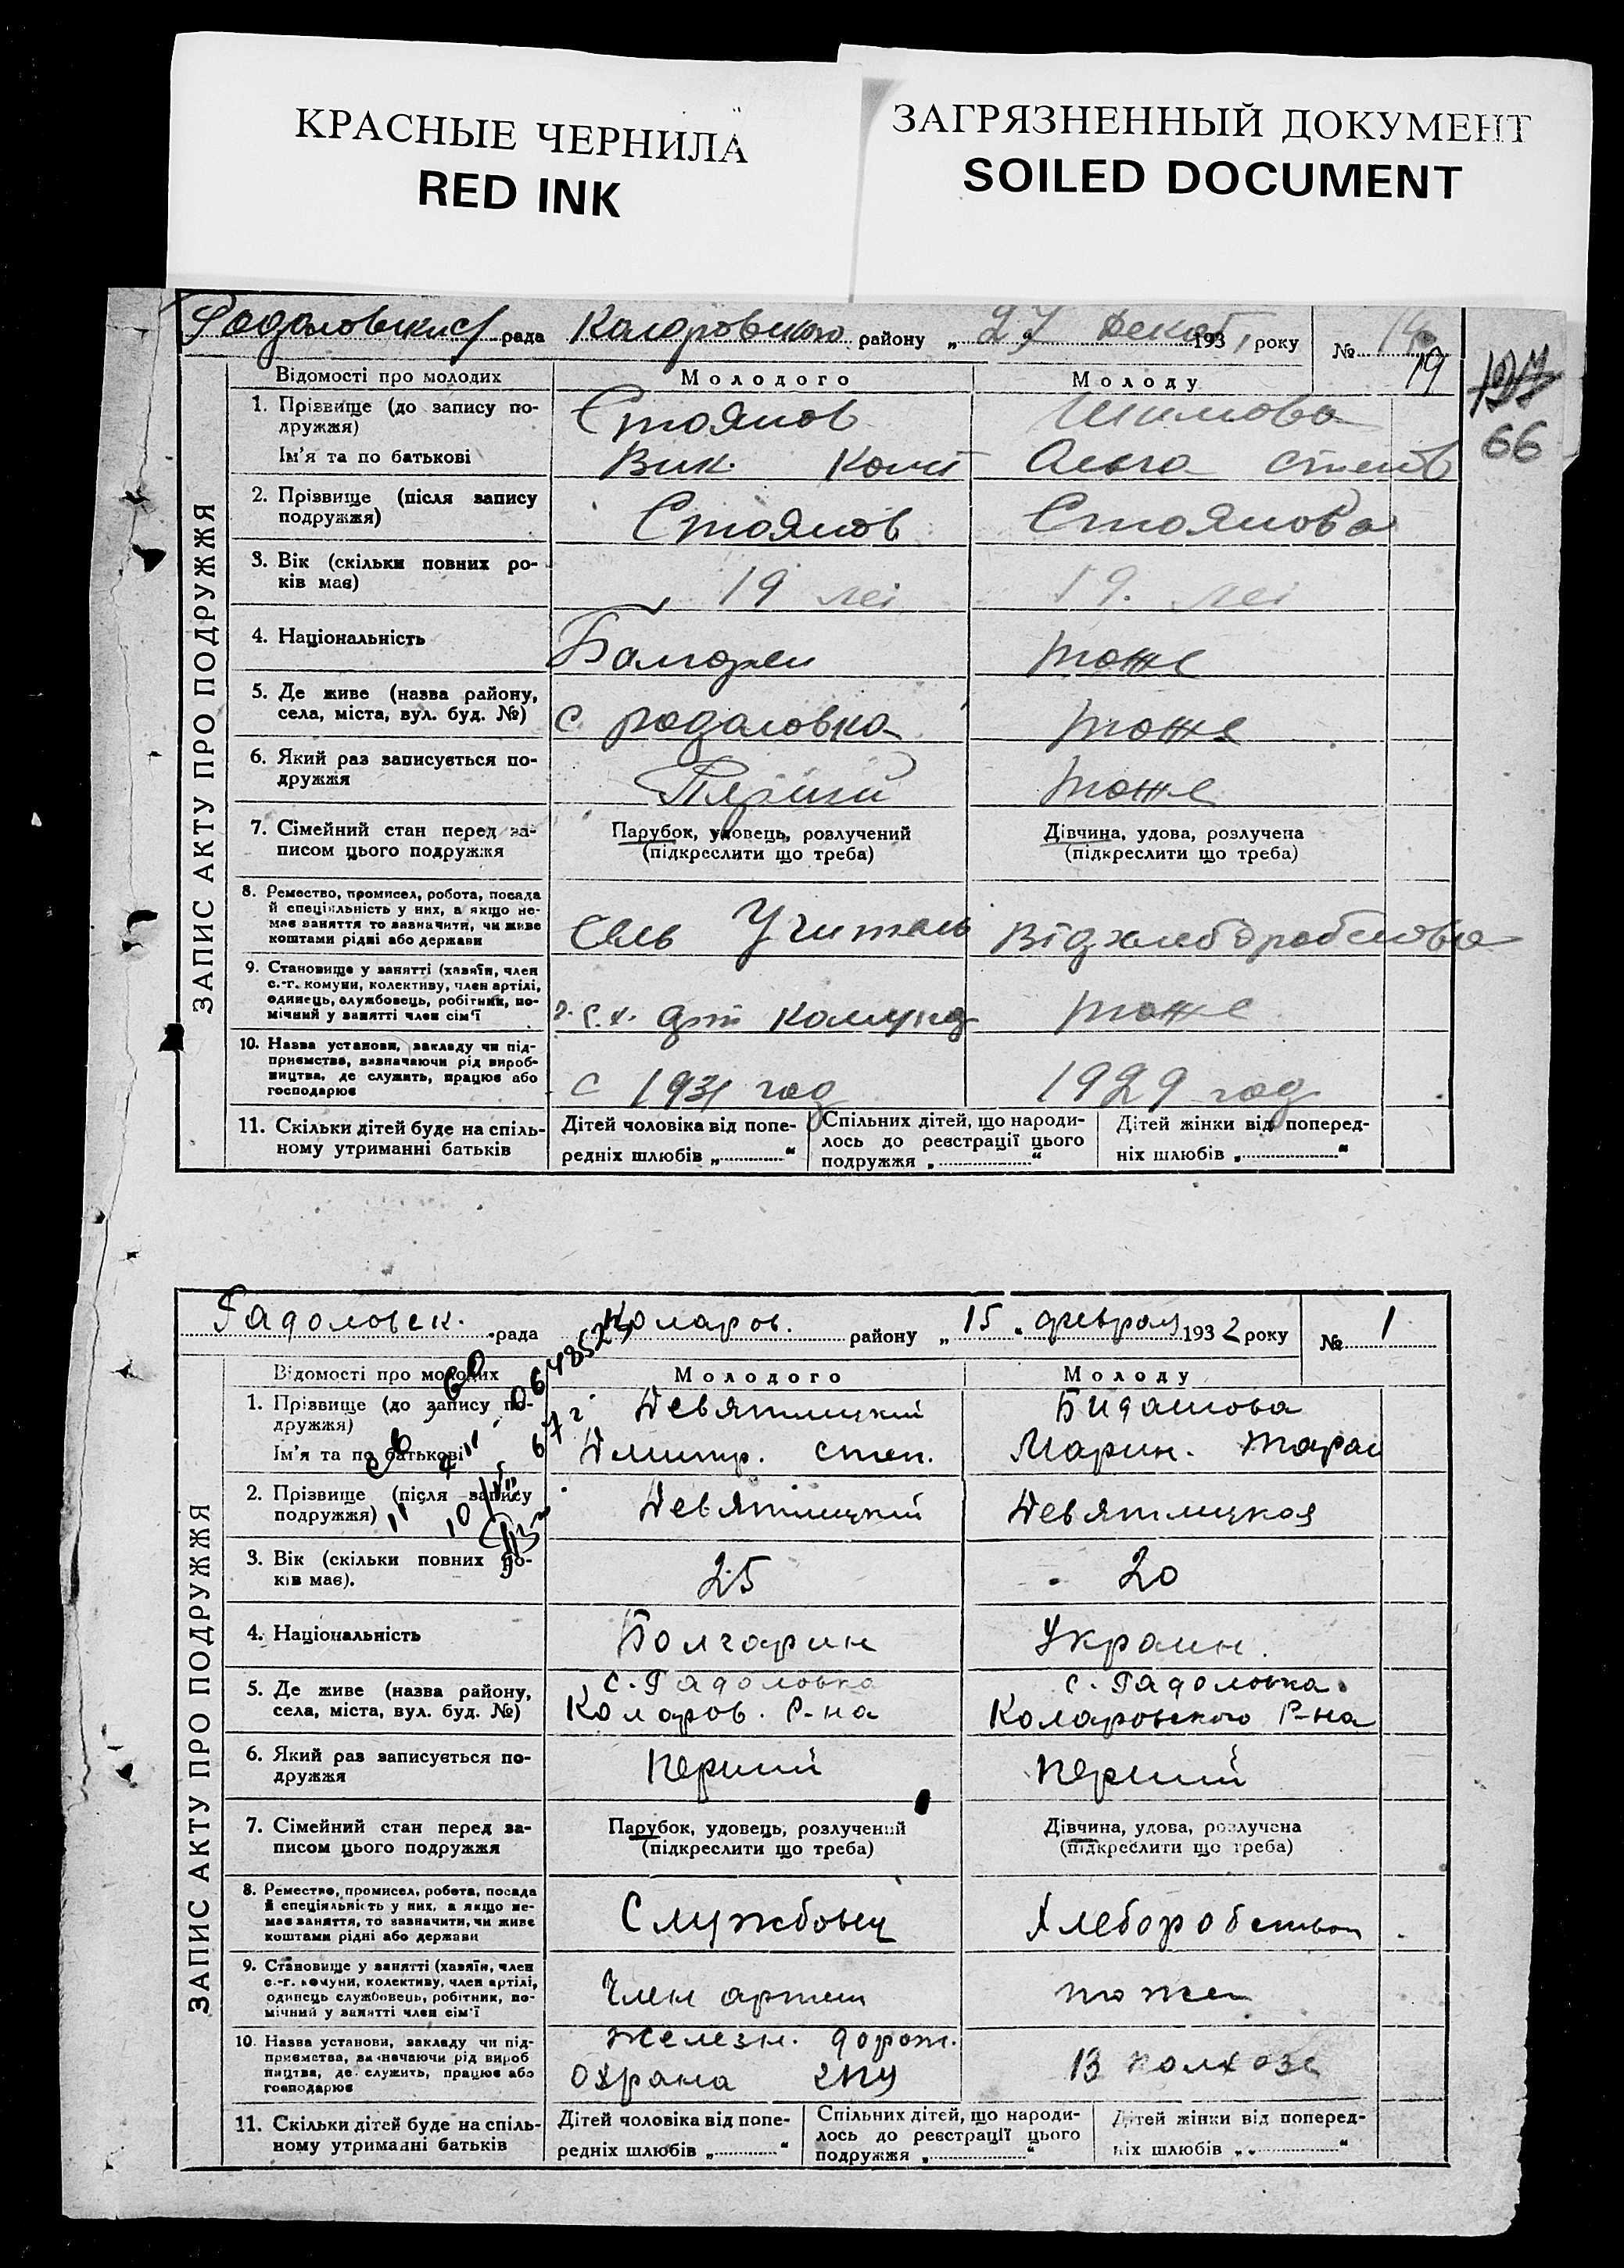 КРАСНЫЕ ЧЕРНИЛА
RED INK
ЗАГРЯЗНЕННЫЙ ДОКУМЕНТ
SOILED DOCUMENT
рада Коларовского району „ 27 Декаб 193 1 року № 
19
66
ЗАПИС АКТУ ПРО ПОДРУЖЖЯ
Відомості про молодих Молодого Молоду
1. Прізвище (до запису по-
дружжя) Стоянов
Ім'я та по батькові Вик. Конст Ольга степ
2. Прізвище (після запису
подружжя) Стоянов Стоянова
3. Вік (скільки повних ро-
ків має) 19 лет 19. лет
4. Національність тоже
5. Де живе (назва району,
села, міста, вул. буд. №) с радоловка тоже
6. Який раз записується по-
дружжя Перший тоже
7. Сімейний стан перед за-
писом цього подружжя
Парубок, удовець, розлучений
(підкреслити що треба)
Дівчина, удова, розлучена
(підкреслити що треба)
8. Ремество, промисел, робота, посада
й спеціяльність у них, а якщо не-
має заняття то зазначити, чи живе
коштами рідні або держави
Сель Учитель
9. Становище у занятті (хазяїн, член
с.-г. комуни, колективу, член артілі,
одинець, службовець, робітник, по-
мічний у занятті член сім'ї
тоже
10. Назва установи, закладу чи під-
приємства, зазначаючи рід вироб-
ництва, де служить, працює або
господарює
с 1931 год 1929 год
11. Скільки дітей буде на спіль-
ному утриманні батьків
Дітей чоловіка від попе-
редніх шлюбів „..........“
Спільних дітей, що народи-
лось до реєстрації цього
подружжя „..........“
Дітей жінки від поперед-
ніх шлюбів „..........“
Радоловск. рада Коларов. району „ 15 „ февраля 193 2 року № 1
ЗАПИС АКТУ ПРО ПОДРУЖЖЯ
Відомості про молодих Молодого Молоду
1. Прізвище (до запису по-
дружжя) Девятлицкий
Ім'я та по батькові Дмитр. степ. Марин. Тарас
2. Прізвище (після запису
подружжя) Девятлицкий Девятлицкая
3. Вік (скільки повних ро-
ків має). 25 20
4. Національність Болгарин Украин.
5. Де живе (назва району,
села, міста, вул. буд. №)
с. Радоловка
Коларов. Р-на
с. Радоловка
Коларовского Р-на
6. Який раз записується по-
дружжя Перший Перший
7. Сімейний стан перед за-
писом цього подружжя
Парубок, удовець, розлучений
(підкреслити що треба)
Дівчина, удова, розлучена
(підкреслити що треба)
8. Ремество, промисел, робота, посада
й спеціяльність у них, а якщо не-
має заняття, то зазначити, чи живе
коштами рідні або держави
Службовец Хлеборобством
9. Становище у занятті (хазяїн, член
с.-г. комуни, колективу, член артілі,
одинець службовець, робітник, по-
мічний у занятті член сім'ї
Член артели тоже
10. Назва установи, закладу чи під-
приємства, зазначаючи рід вироб
ництва, де служить, працює або
господарює
железн. дорож.
охрана гпу
В колхозе
11. Скільки дітей буде на спіль-
ному утриманні батьків
Дітей чоловіка від попе-
редніх шлюбів „..........“
Спільних дітей, що народи-
лось до реєстрації цього
подружжя „..........“
Дітей жінки від поперед-
ніх шлюбів „..........“